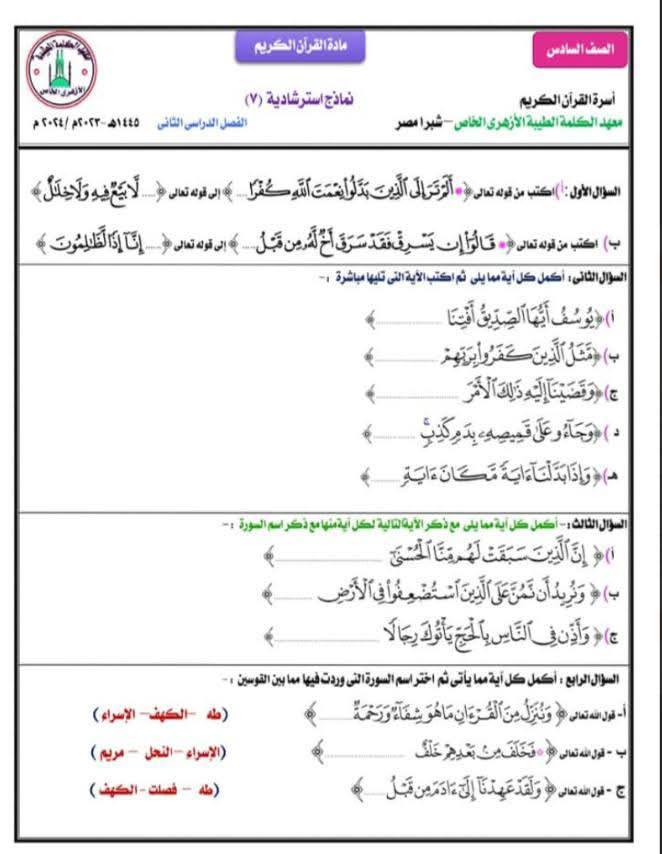 الصف السادس
مادة القرآن الكريم
أسرة القرآن الكريم
نماذج استرشادية (٧)
معهد الكلمة الطيبة الأزهرى الخاص – شبرا مصر
الفصل الدراسى الثانى
١٤٤٥هـ -٢٠٢٣م /٢٠٢٤ م
السؤال الأول : أ) اكتب من قوله تعالى ﴿ أَلَمْ تَرَ إِلَى ٱلَّذِينَ بَدَّلُوا۟ نِعْمَتَ ٱللَّهِ كُفْرًا .... ﴾ إلى قوله تعالى ﴿ .... لَّا بَيْعٌ فِيهِ وَلَا خِلَـٰلٌ ﴾
ب) اكتب من قوله تعالى ﴿ قَالُوٓا۟ إِن يَسْرِقْ فَقَدْ سَرَقَ أَخٌ لَّهُۥ مِن قَبْلُ .... ﴾ إلى قوله تعالى ﴿ ..... إِنَّآ إِذًا لَّظَـٰلِمُونَ ﴾
السؤال الثانى : أكمل كل آية مما يلى ثم اكتب الآية التى تليها مباشرة :-
أ) ﴿ يُوسُفُ أَيُّهَا ٱلصِّدِّيقُ أَفْتِنَا .................. ﴾
ب) ﴿ مَّثَلُ ٱلَّذِينَ كَفَرُوا۟ بِرَبِّهِمْ .................. ﴾
ج) ﴿ وَقَضَيْنَآ إِلَيْهِ ذَٰلِكَ ٱلْأَمْرَ .................. ﴾
د ) ﴿ وَجَآءُو عَلَىٰ قَمِيصِهِۦ بِدَمٍ كَذِبٍ .......... ﴾
هـ) ﴿ وَإِذَا بَدَّلْنَآ ءَايَةً مَّكَانَ ءَايَةٍ .......... ﴾
السؤال الثالث :- أكمل كل آية مما يلى مع ذكر الآية التالية لكل آية منها مع ذكر اسم السورة :-
أ) ﴿ إِنَّ ٱلَّذِينَ سَبَقَتْ لَهُم مِّنَّا ٱلْحُسْنَىٰٓ .................. ﴾
ب) ﴿ وَنُرِيدُ أَن نَّمُنَّ عَلَى ٱلَّذِينَ ٱسْتُضْعِفُوا۟ فِى ٱلْأَرْضِ .......... ﴾
ج) ﴿ وَأَذِّن فِى ٱلنَّاسِ بِٱلْحَجِّ يَأْتُوكَ رِجَالًا .................. ﴾
السؤال الرابع : أكمل كل آية مما يأتى ثم اختر اسم السورة التى وردت فيها مما بين القوسين :-
أ- قول الله تعالى ﴿ وَنُنَزِّلُ مِنَ ٱلْقُرْءَانِ مَا هُوَ شِفَآءٌ وَرَحْمَةٌ .......... ﴾ (طه – الكهف – الإسراء )
ب - قول الله تعالى ﴿ فَخَلَفَ مِنۢ بَعْدِهِمْ خَلْفٌ .................. ﴾ (الإسراء – النحل – مريم )
ج - قول الله تعالى ﴿ وَلَقَدْ عَهِدْنَآ إِلَىٰٓ ءَادَمَ مِن قَبْلُ ...... ﴾ ( طه – فصلت - الكهف )